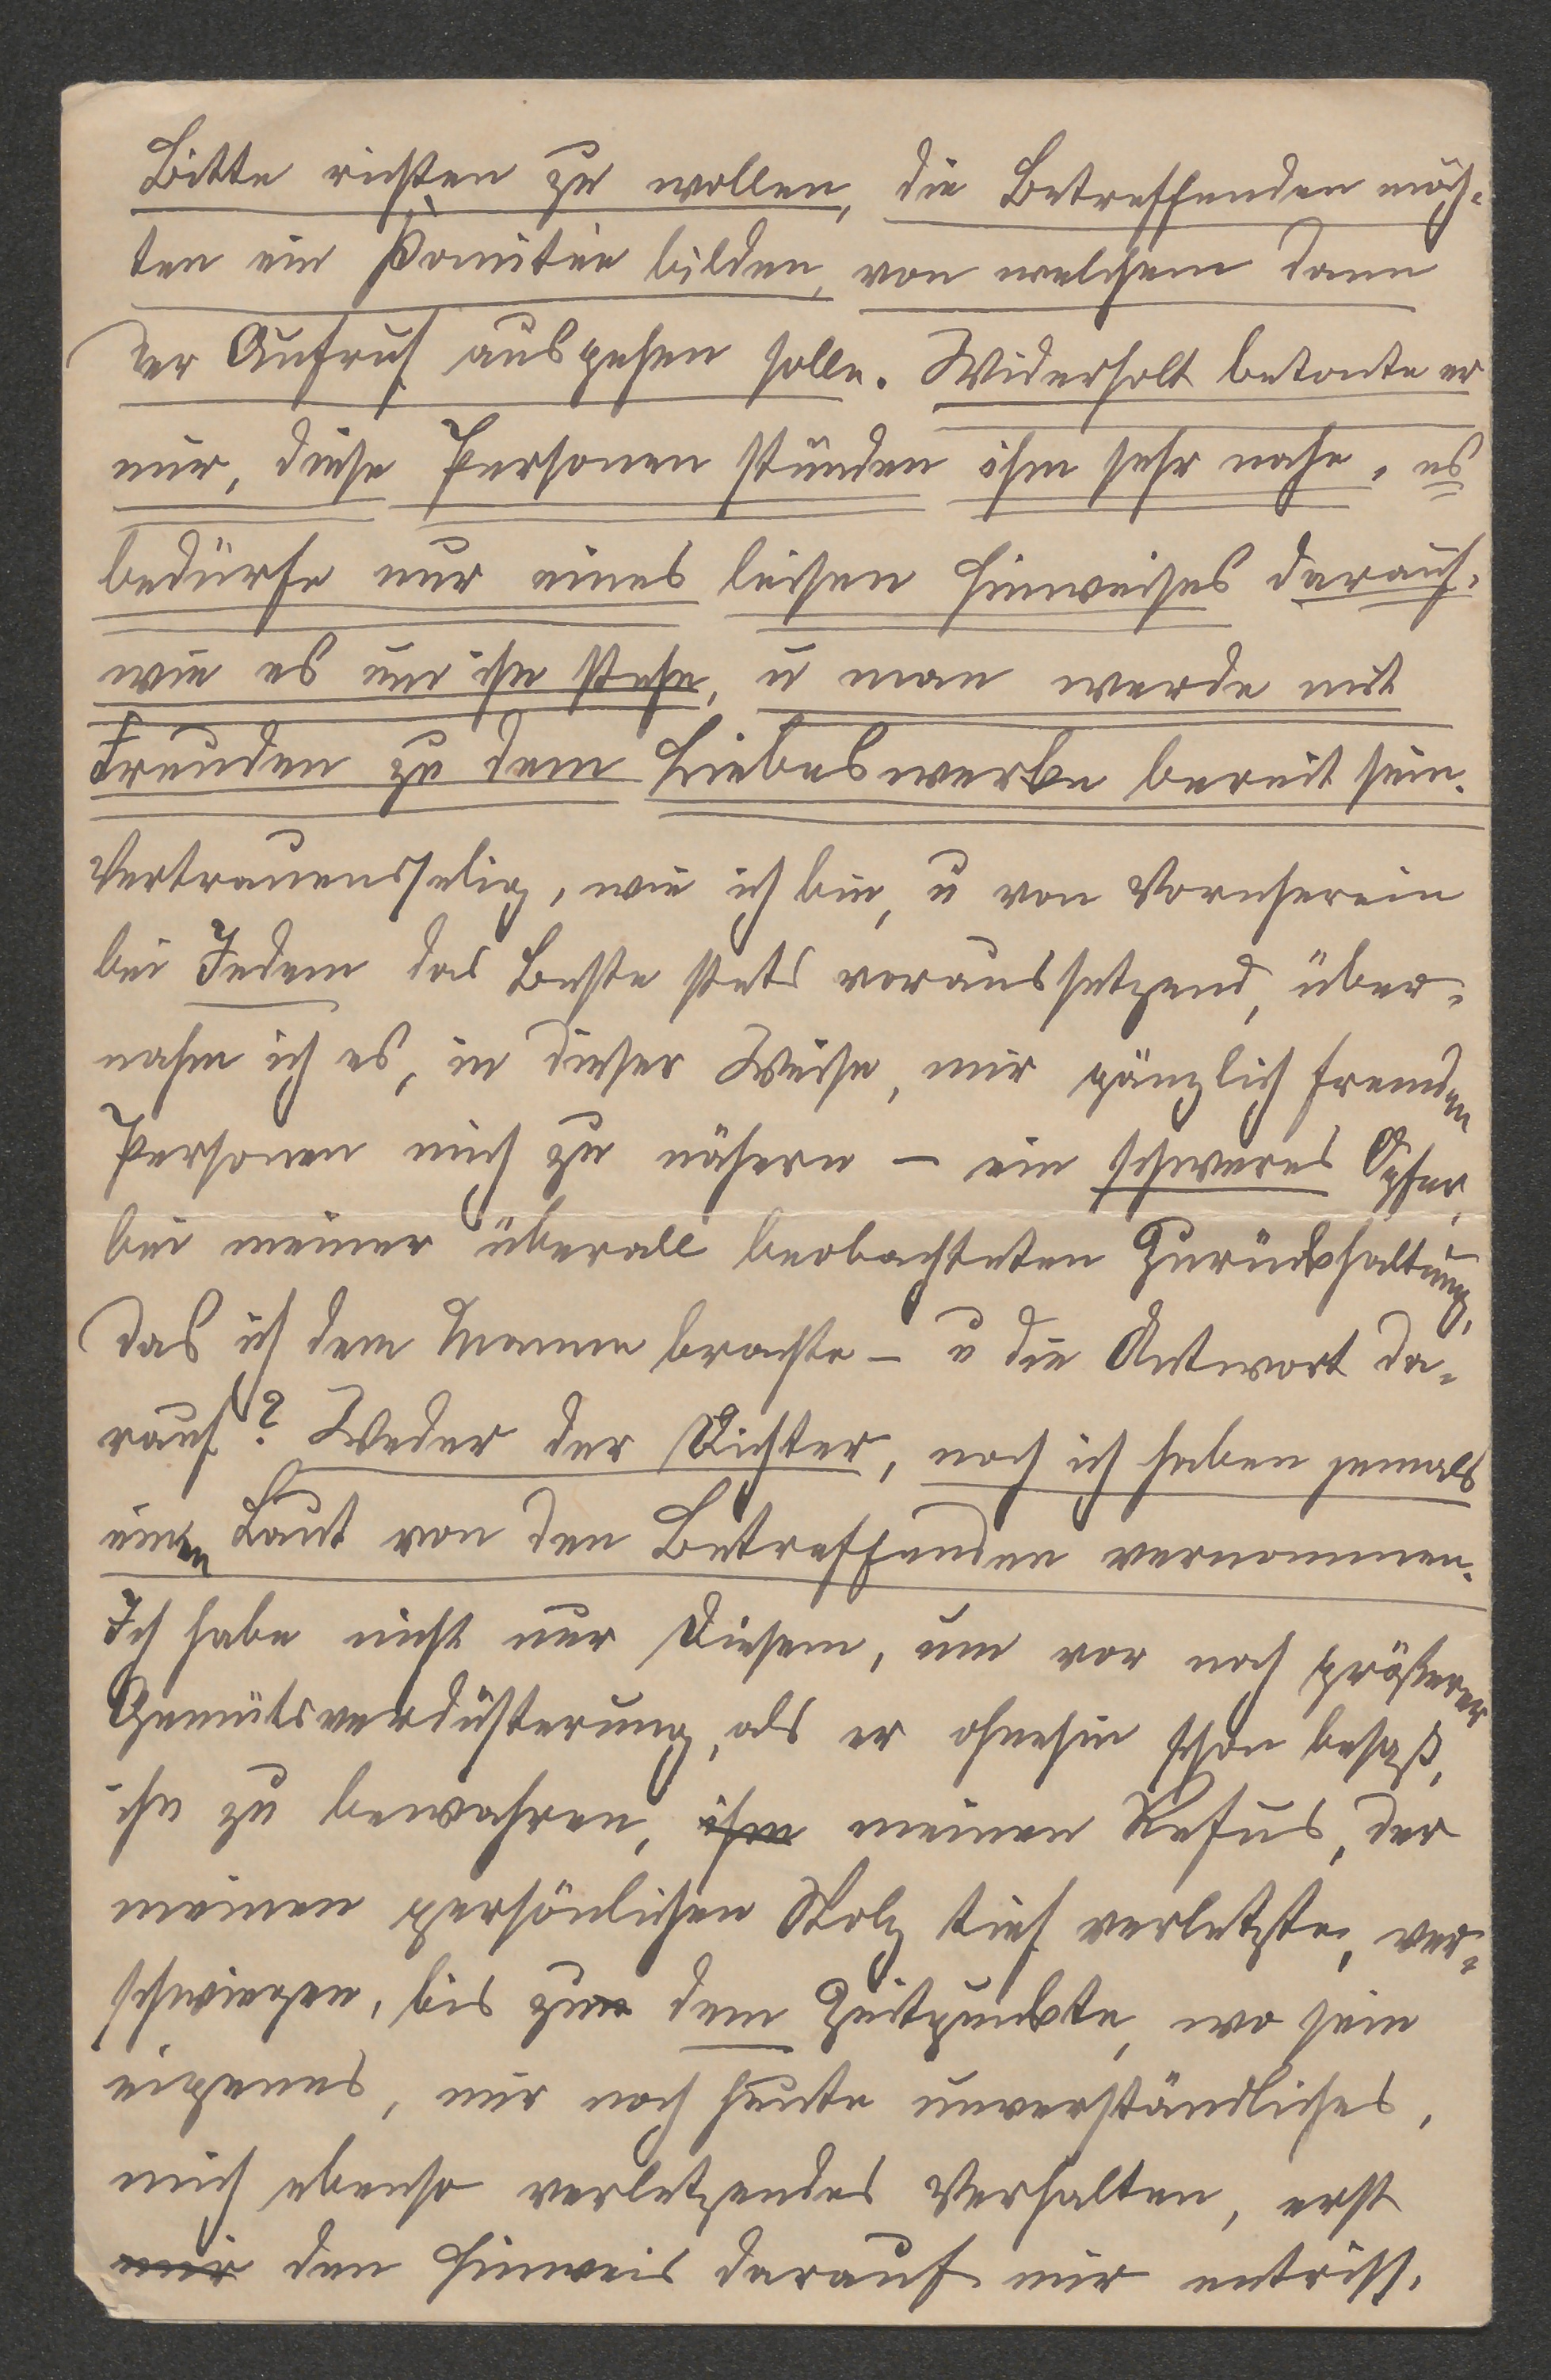 Bitte richten zu wollen, die Betreffenden möch-
ten ein Komitée bilden, von welchem dann
der Aufruf ausgehen solle. Widerholt betonte er
mir, diese Personen stünden ihm sehr nahe, es
bedürfe nur eines leisen Hinweises darauf,
wie es um ihn stehe, u man werde mit
Freuden zu dem Liebeswerke bereit sein.
Vertrauensselig, wie ich bin, u von Vornherein
bei Jedem das Beste stets voraussetzend, über-
nahm ich es, in dieser Weise, mir gänzlich fremden
Personen mich zu nähern – ein schweres Opfer,
bei meiner überall beobachteten Zurückhaltung,
das ich dem Manne brachte – u die Antwort da-
rauf? Weder der Dichter, noch ich haben jemals
einen Laut von den Betreffenden vernommen.
Ich habe nicht nur Diesem, um vor noch größerer
Gemütsverdüsterung, als er ohnehin schon besaß,
ihn zu bewahren, ihm meinen Refus, der
meinen persönlichen Stolz tief verletzte, ver-
schwiegen, bis zu dem Zeitpunkte, wo sein
eigenes, mir noch heute unverständliches,
mich ebenso verletzendes Verhalten, erst
mir den Hinweis darauf mir entriss.